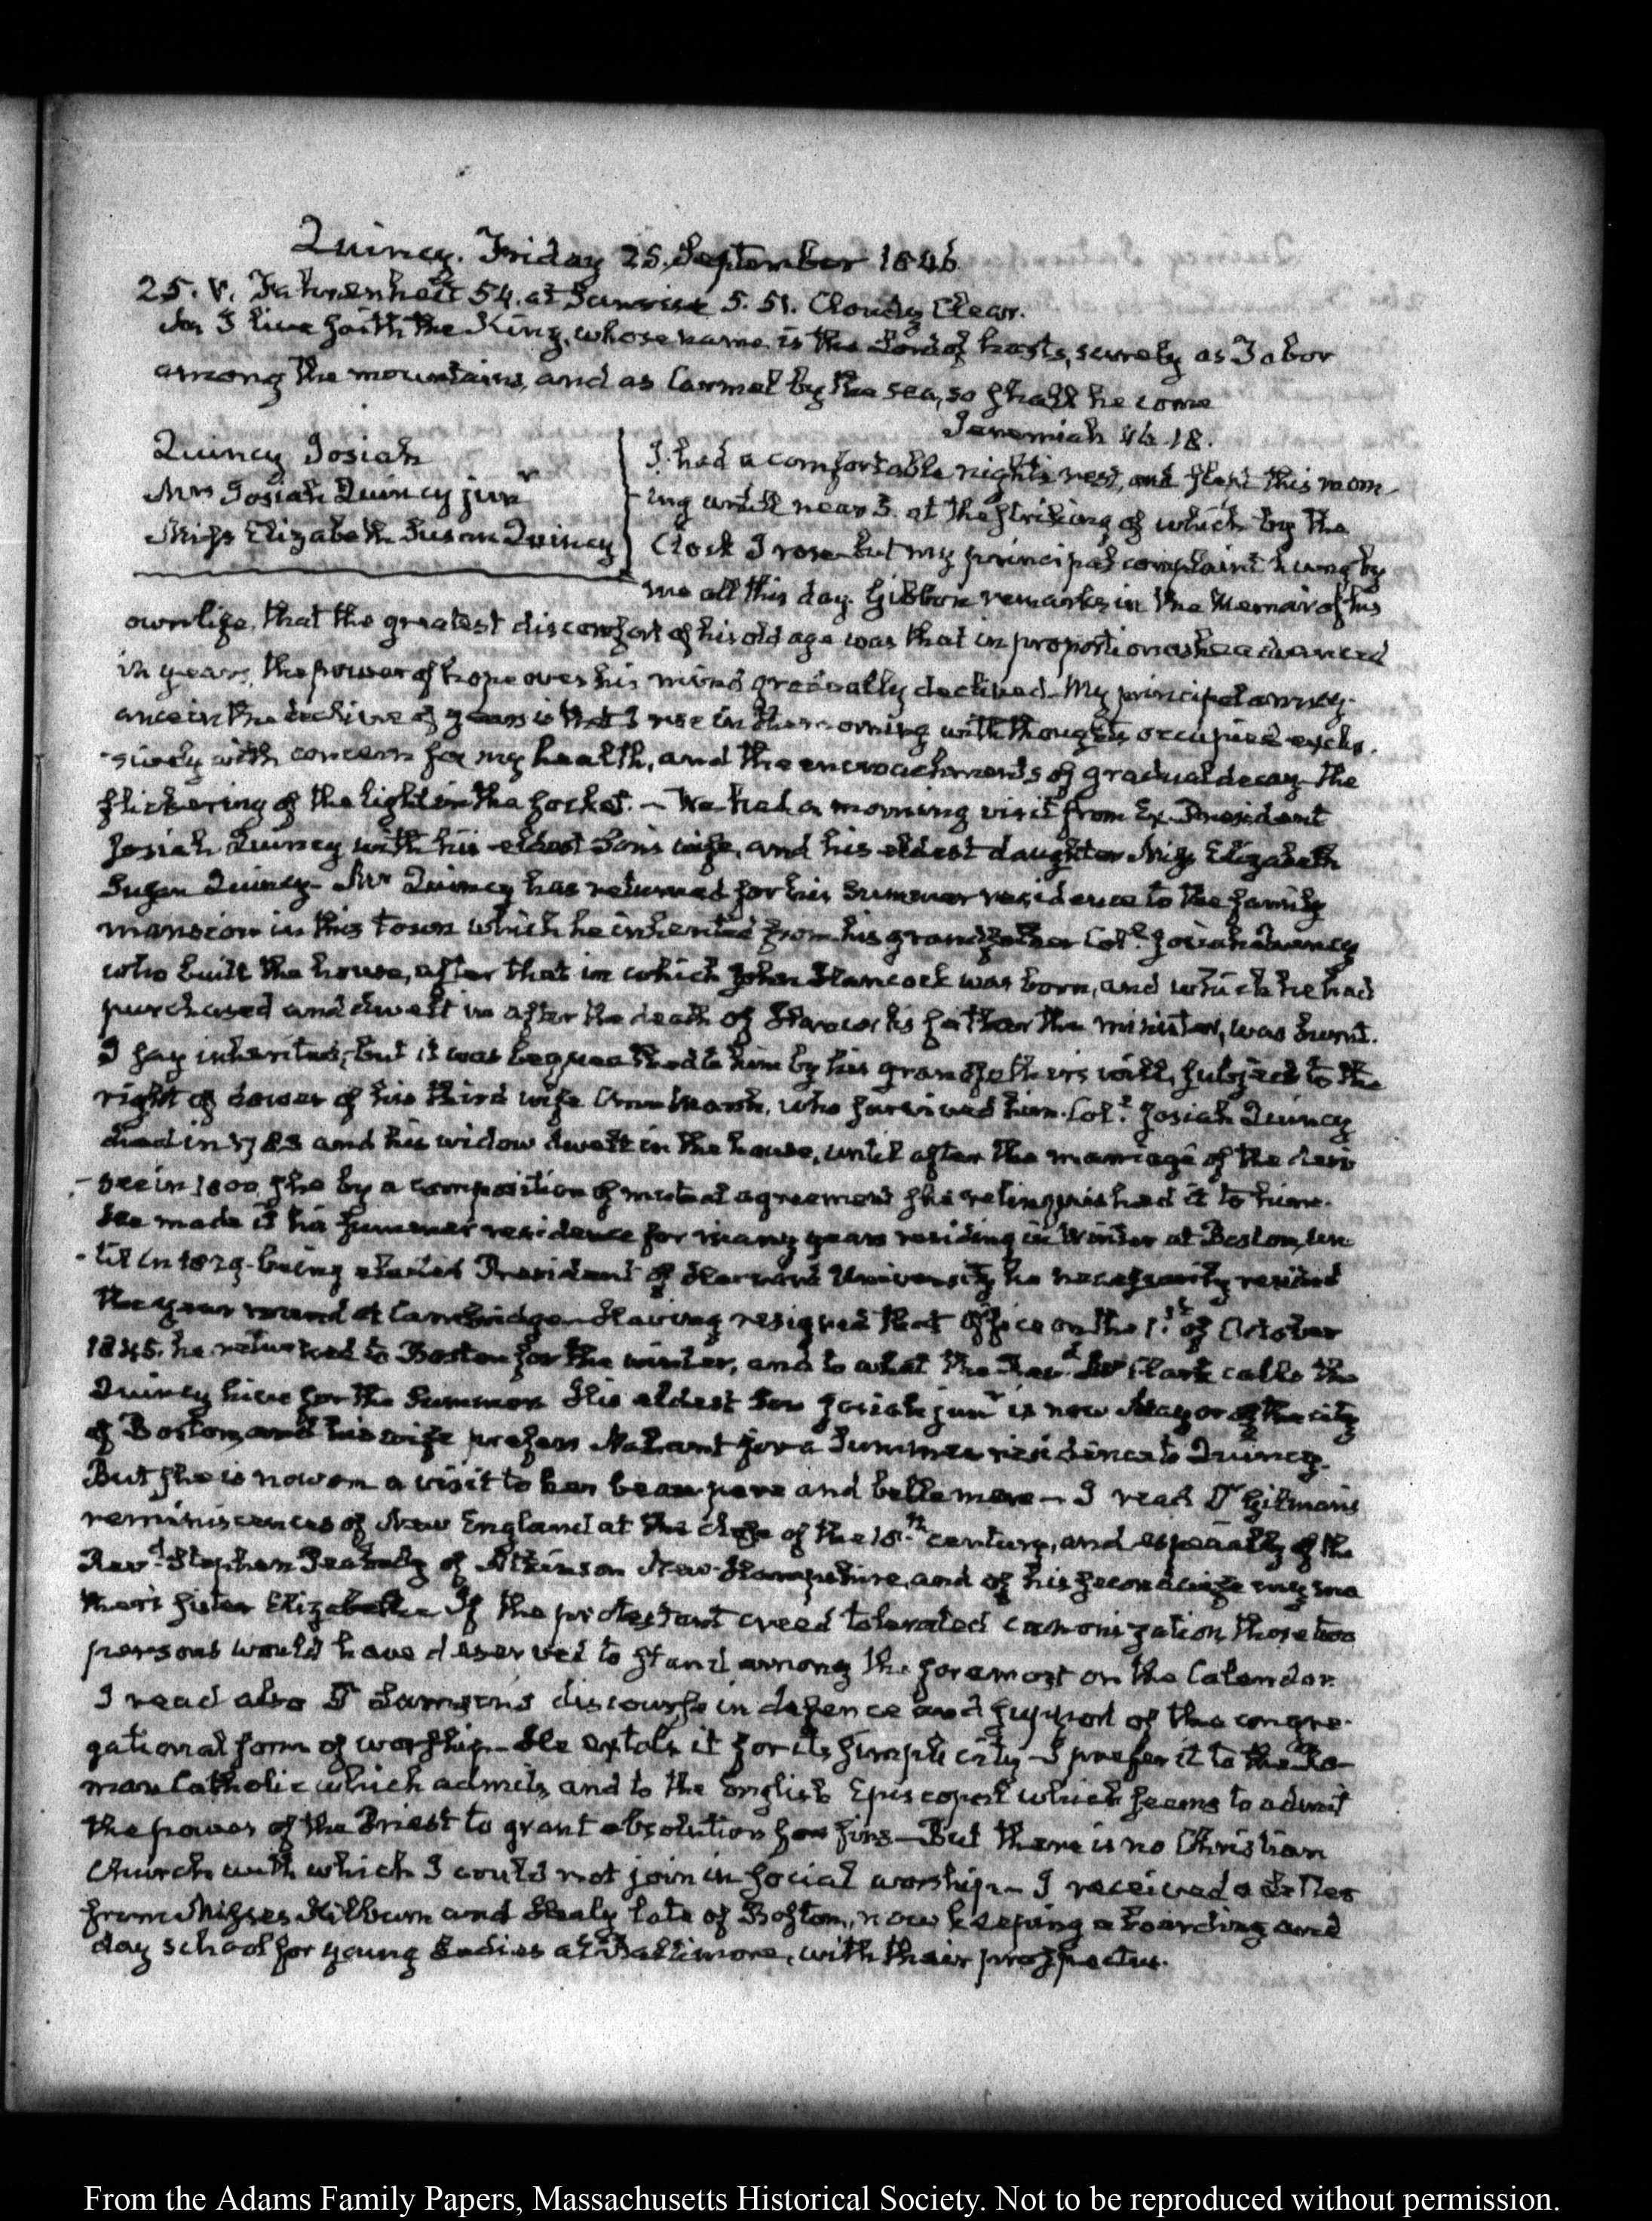 Quincy. Friday 25. September 1846.
25. V. Fahrenheit 54. at Sunrise 5. 51. Cloudy Clear.
As I live saith the King, whose name is the Lord of hosts, surely as Tabor
among the mountains, and as Carmel by the sea, so shall he come
Jeremiah 46. 18.
Quincy Josiah
Mrs Josiah Quincy junr
Miss Elizabeth Susan Quincy
I had a comfortable night's rest, and slept this morn-
-ing until near 5. at the striking of which by the
Clock I rose but my principal complaint hung by
me all this day. Gibbon remarks in the Memoir of his
own life, that the greatest discomfort of his old age was that in proportion as he advanced
in years, the power of hope over his mind gradually declined. My principal annoy-
ance in the decline of years is that I rise in the morning with thoughts occupied exclu-
-sively with concern for my health, and the encroachments of gradual decay the
flickering of the light in the socket. — We had a morning visit from Ex-President
Josiah Quincy with his eldest Son's wife, and his eldest daughter Miss Elizabeth
Susan Quincy - Mr Quincy has returned for his Summer residence to the family
mansion in this town which he inherited from his grandfather Coll. Josiah Quincy
who built the house, after that in which John Hancock was born, and which he had
purchased and dwelt in after the death of Hancock's father the minister, was burnt.
I say inherited, but it was bequeathed to him by his grandfather's will, subject to the
right of dower of his third wife Ann Marsh, who survived him. Coll. Josiah Quincy
died in 1783 and his widow dwelt in the house, until after the marriage of the devi
-see in 1800 she by a composition of mutual agreement she relinquished it to him.
He made it his summer residence for many years residing in Winter at Boston, un
-til in 1829 being elected President of Harvard University he necessarily resided
the year round at Cambridge. Having resigned that office on the 1st of October
1845. he returned to Boston for the winter, and to what the Revd Mr Clark calls the
Quincy hive for the Summer. His eldest Son Josiah junr is now Mayor of the city
of Boston, and his wife prefers Nahant for a Summer residence to Quincy.
But she is now on a visit to her beau pere and belle mere — I read Dr Gilman's
reminiscences of New England at the close of the 18th century, and especially of the
Revd Stephen Peabody of Atkinson New-Hampshire, and of his second wife my mo
ther's sister Elizabeth. If the protestant creed tolerated canonization, those two
persons would have deserved to stand among the foremost on the Calendar.
I read also Dr Lamson's discourse in defence and support of the congre-
gational form of worship. He extols it for its simplicity - I prefer it to the Ro-
man Catholic which admits, and to the English Episcopal which seems to admit
the power of the Priest to grant absolution for sins — But there is no Christian
Church with which I could not join in social worship. — I received a Letter
from Misses Kilburn and Healy late of Boston, now keeping a boarding and
day school for young Ladies at Baltimore, with their prospectus.
From the Adams Family Papers, Massachusetts Historical Society. Not to be reproduced without permission.